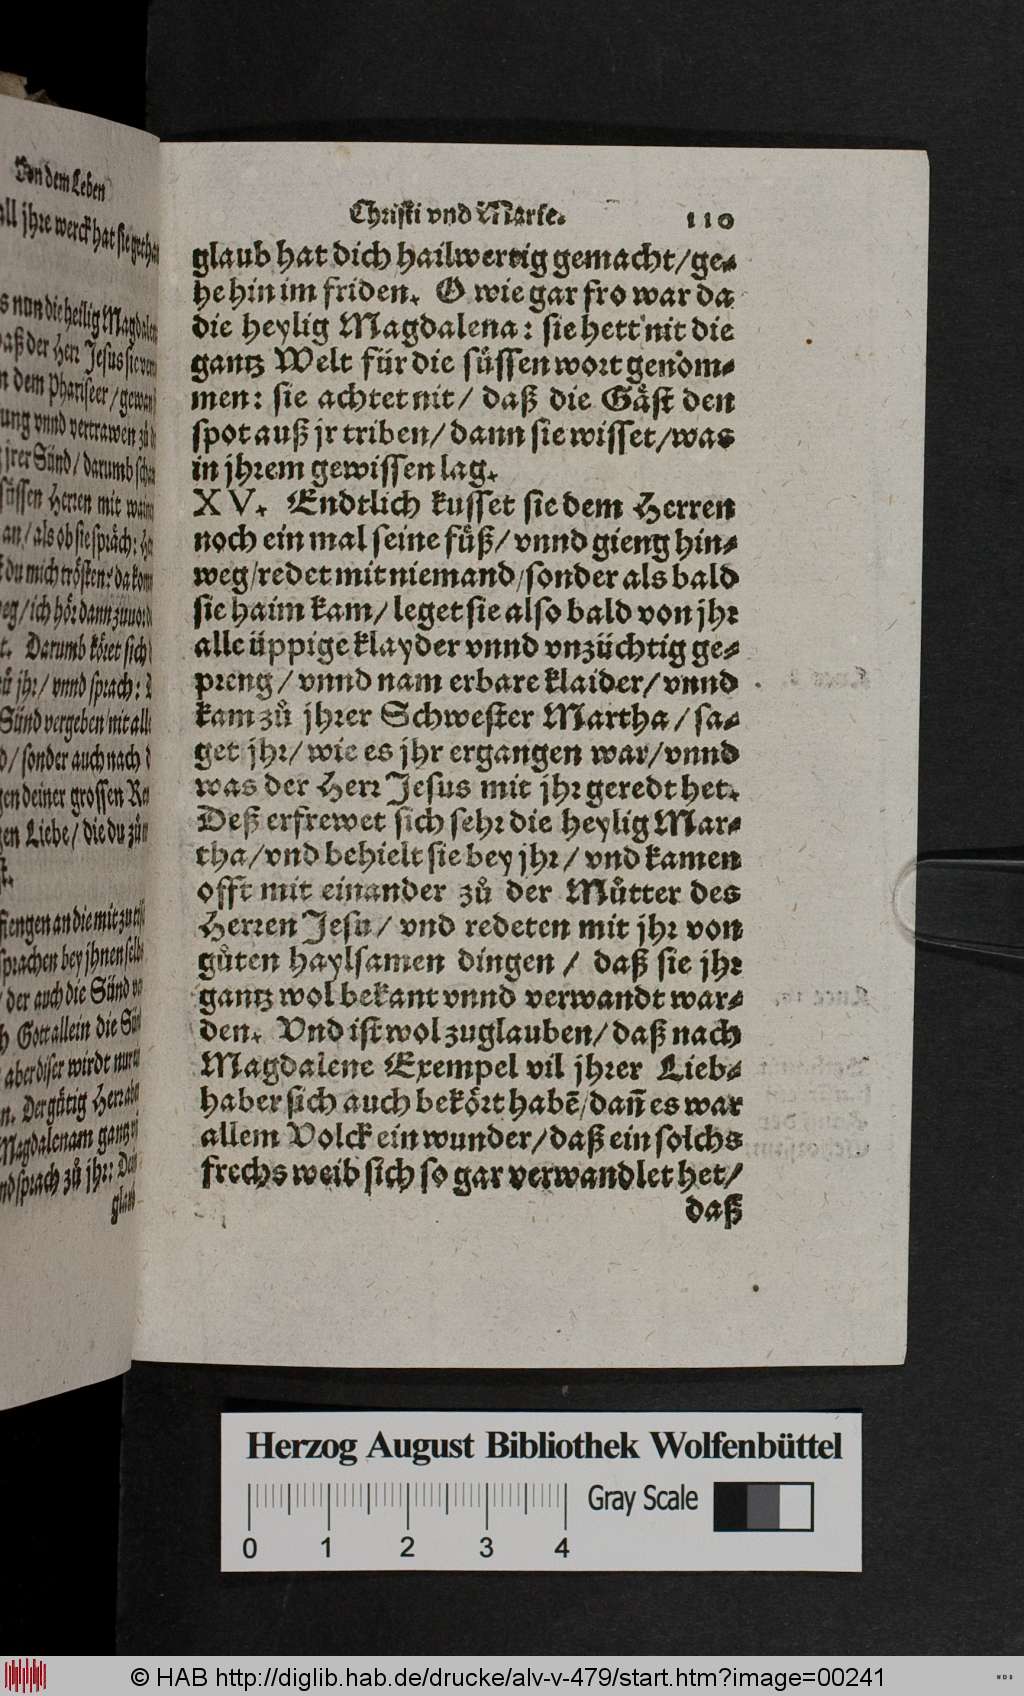 Von dem Leben
all jhre werck hat sie
s nun die heilig
aß der Herr Jesus sie
n dem Phariseer / gewan
ung vnnd vertrawen zů
jrer Sünd / darumb
süssen Herren mit
an / als ob sie spräch:
du mich trösten: da kom
eg / ich hör dann zuuor
t. Darumb köret sich
ů jhr / vnnd sprach:
Sünd vergeben nit all
d / sonder auch nach
gen deiner grossen
gen Liebe / die du
t.
fiengen an die mit
sprachen bey jhnen selb
der auch die Sünd
h Gott allein die
aber diser wirdt
n. Der gůtig Herr
Magdalenam gantz
nd sprach zů jhr:
Christi vnd Marie. 110
glaub hat dich hailwertig gemacht / ge-
he hin im friden. O wie gar fro war da
die heylig Magdalena: sie hett nit die
gantz Welt für die süssen wort genom-
men: sie achtet nit / daß die Gäst den
spot auß jr triben / dann sie wisset / was
in jhrem gewissen lag.
XV. Endtlich kusset sie dem Herren
noch ein mal seine füß / vnnd gieng hin-
weg / redet mit niemand / sonder als bald
sie haim kam / leget sie also bald von jhr
alle üppige klayder vnnd vnzüchtig ge-
preng / vnnd nam erbare klaider / vnnd
kam zů jhrer Schwester Martha / sa-
get jhr / wie es jhr ergangen war / vnnd
was der Herr Jesus mit jhr geredt het.
Deß erfrewet sich sehr die heylig Mar-
tha / vnd behielt sie bey jhr / vnd kamen
offt mit einander zů der Můtter des
Herren Jesu / vnd redeten mit jhr von
gůten haylsamen dingen / daß sie jhr
gantz wol bekant vnnd verwandt war-
den. Vnd ist wol zuglauben / daß nach
Magdalene Exempel vil jhrer Lieb-
haber sich auch bekört habē / dañ es war
allem Volck ein wunder / daß ein solchs
frechs weib sich so gar verwandlet het /
daß
Herzog August Bibliothek Wolfenbüttel
Gray Scale
0 1 2 3 4
© HAB http://diglib.hab.de/drucke/alv-v-479/start.htm?image=00241